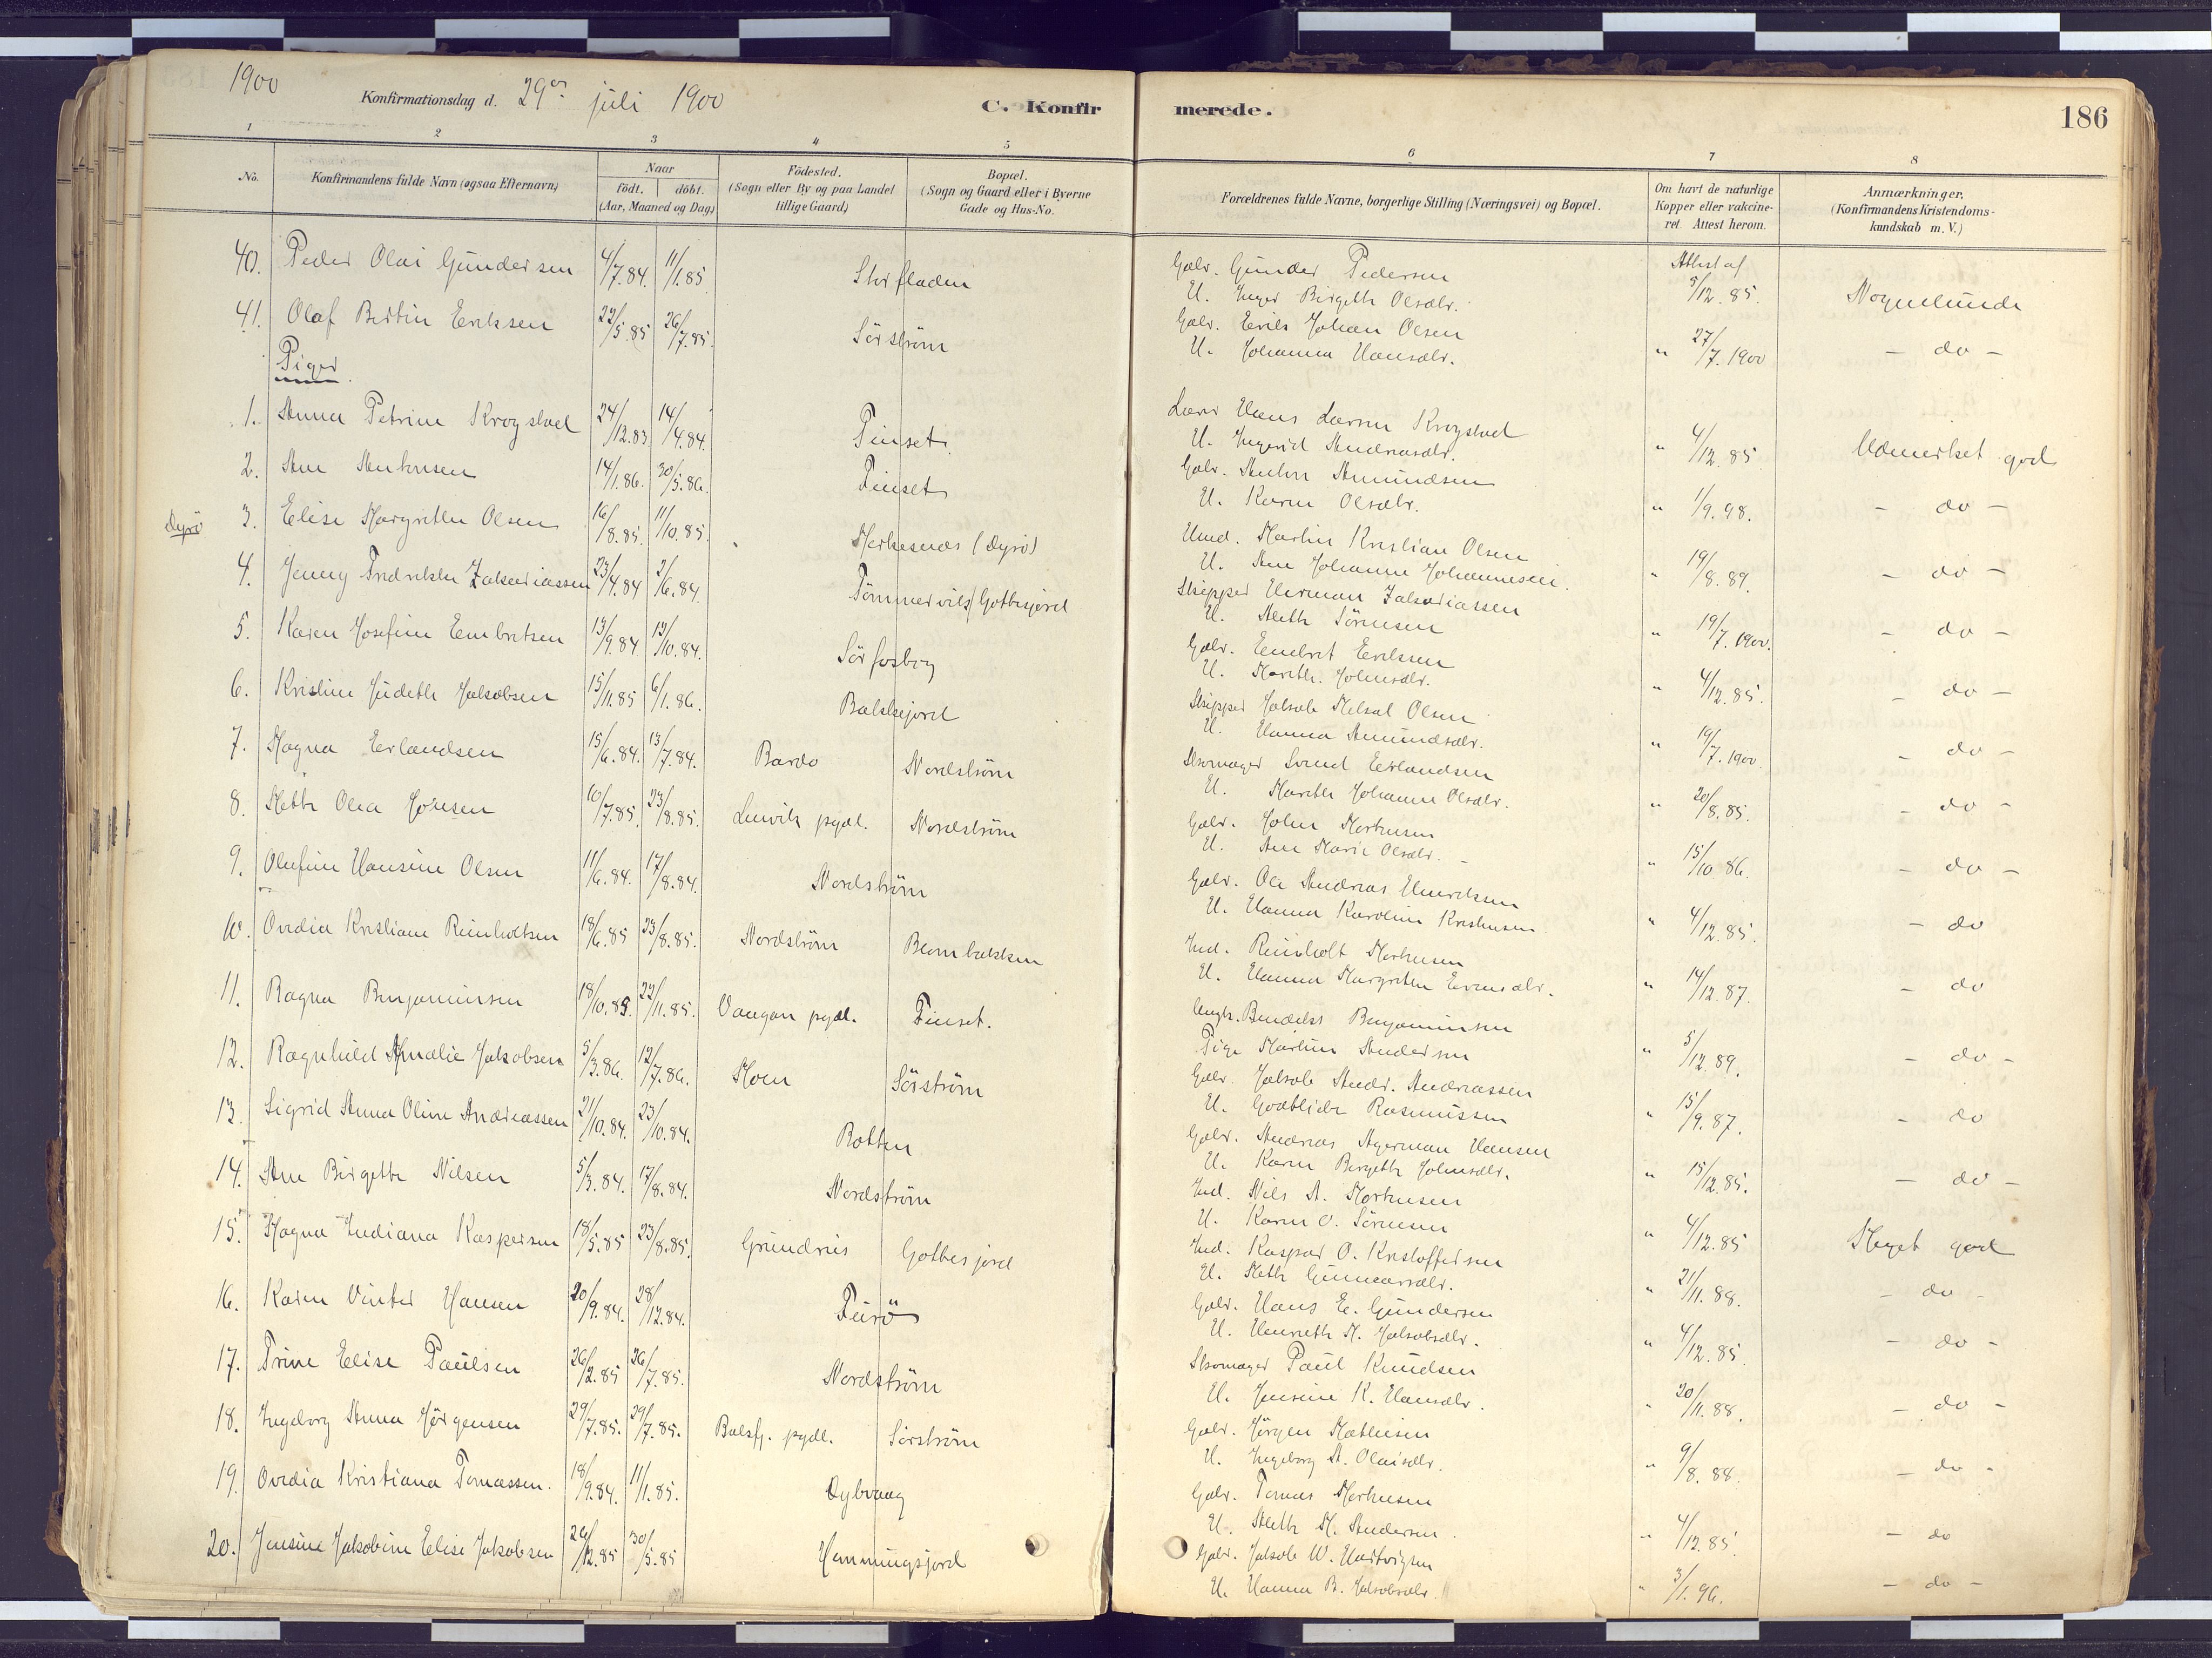 1900
Konfirmationsdag d. 29de juli 1900
C. Konfirmerede.
186
1 2 3 4 5 6 7 8
No.
Konfirmandens fulde Navn (ogsaa Efternavn)
Naar
födt. döbt.
(Aar, Maaned og Dag)
Födested.
(Sogn eller By og paa Landet
tillige Gaard)
Bopæl.
(Sogn og Gaard eller i Byerne
Gade og Hus-No.
Forældrenes fulde Navne, borgerlige Stilling (Næringsvei) og Bopæl.
Om havt de naturlige
Kopper eller vakcine-
ret. Attest herom.
Anmærkninger.
(Konfirmandens Kristendoms-
kundskab m. V.)
40. Peder Olai Gundersen 4/7.84. 11/1.85 Storfladen Gabr. Gunder Pedersen Attest af 5/12.85.
U. Inger Birgette Olsdtr. Nogenlunde
41. Olaf Bertin Eriksen 22/5.85 26/7.85. Sörström Gabr. Erik Johan Olsen
U. Johanna Hansdtr. " 27/7.1900 - do -
Piger
1. Anna Petrine Krogstad 24/12.83 14/4.84. Finset Lærer Hans Larsen Krogstad
U. Ingerid Andreasdtr. " 4/12.85 Udmerket god
2. Ane Antonsen 14/1.86. 30/5.86. Finset Gabr. Anton Amundsen
U. Karen Olsdtr. " 1/9.98. - do -
Dyrö 3. Elise Margrethe Olsen 16/8.85. 11/10.85. (Dyrö) Martin Kristian Olsen
U. Ane Johanne Johannesen. " 19/8.89. - do -
4. Jenny Fredrikke Zakariassen 23/4.84 2/6.84. Tömmervik/Gottesjord Skipper Herman Zakariassen
U. Mette Sörensen " 19/7.1900. - do -
5. Karen Josefine Embretsen 13/9.84 19/10.84. Sörfosbog Gabr. Embret Eriksen
U. Marith. Johnsdtr. " 4/12.85. - do -
6. Kristine Judeth Jakobsen 15/11.85 6/1.86. Balskjord Skipper Jakob Olsen
U. Hanna Amundsdtr. " 19/7.1900. - do -
7. Magna Erlandsen 15/6.84. 13/7.84. Bardo Nordström Skomager Svend Erlandsen
U. Marith Johanna Olsdtr. " 20/8.85. - do -
8. Mette Olea Johnsen 10/7.85. 23/8.85. Lenvik pgdl. Nordström Gabr. John Mortensen
U. Ane Marie Olsdtr. - " 15/10 86. - do -
9. Olufine Hansine Olsen 11/6.84. 17/8.84. Nordström Gabr. Ole Andreas Henriksen
U. Hanna Karoline Kristensen " 4/12.85. - do
10. Ovidia Kristiane Reinholtsen 18/6.85 23/8.85. Nordström Blombakken Ind. Reinholt Mortensen
U. Hanna Margrethe Evensdtr. " 14/12.87. - do
11. Ragna Benjaminsen 18/10.85 22/11.85. Vaagan pgdl. Finset. Ungk. Bendiks Benjaminsen
Pige Martine Andersen " 5/12.89. - do -
12. Ragnhild Amalie Jakobsen 5/3.86. 12/7.86. Moen Sörström Gabr. Jakob Andr. Andreassen
U. Godtlide Rasmussen " 15/9.87. - do
13. Sigrid Anna Oline Andreassen 21/10.84. 23/10.84. Botten Gabr. Andreas Agerman Hansen
U. Karen Birgette Johnsdtr. " 15/12.85. - do -
14. Ane Birgette Nilsen 5/3.84. 17/8.84. Nordström Ind. Nils A. Mortensen
U. Karen O. Sörensen " 4/12.85 Meget god
15. Magna Indiana Kaspersen 18/5.85 23/8.85. Grundnes Gottesjord Ind. Kasper O. Kristoffersen
U. Mette Gunnarsdtr. " 21/11.88. - do -
16. Karen Vinter Hansen 20/9.84. 28/12.84. Teisö Gabr. Hans E. Gundersen
U. Henrette M. Jakobsdtr. " 4/12.85 - do -
17. Trine Elise Paulsen 26/2.85 26/7.85. Nordström Skomager Paul Knudsen
U. Jensine K. Hansdtr. " 20/11.88. - do -
18. Ingeborg Anna Jörgensen 29/7.85. 29/7.85. Balsfj. pgdl. Sörström Gabr. Jörgen Mathisen
U. Ingeborg A. Olaisdtr. " 9/8.88. - do -
19. Ovedia Kristiana Tomassen. 18/9.84. 11/1.85. Dybvaag Gabr. Tomas Mortensen
U. Mette M. Andersen. " 4/12.85. - do
20. Jensine Jakobine Elise Jakobsen 26/12.85 30/5.85 Hemmingsjord Gabr. Jakob W. Hartvigsen
U. Hanna B. Jakobsdtr. " 3/1.96. - do -